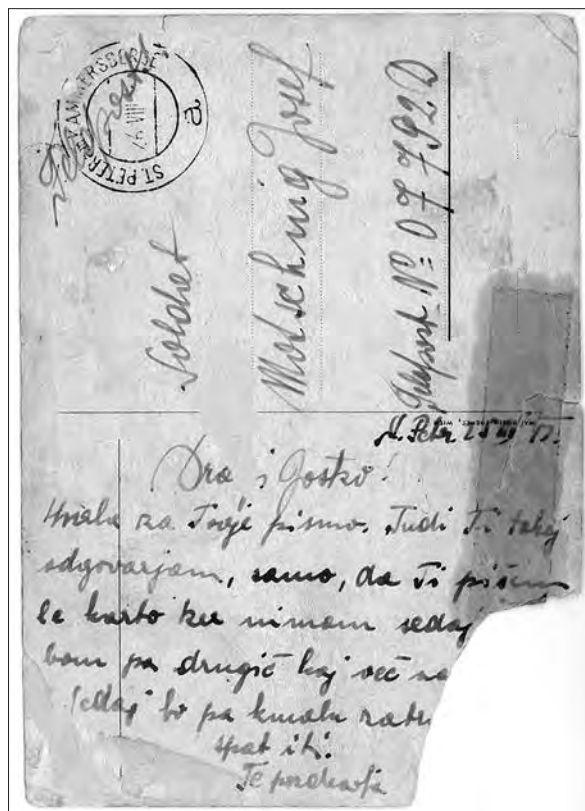 ST. PETER
a
Feldpost
Soldat
Motschnig Josef
Feldpost № = 07762 D
St. Peter
Dra i Jostko!
Hvala za Tvoje pismo. Tudi Ti takoj
odgovarjam, samo, da Ti pišem
le karto ker nimam sedaj
bom pa drugič kaj več na
Sedaj bo pa kmalu
spat iti.
Te pozdravlja